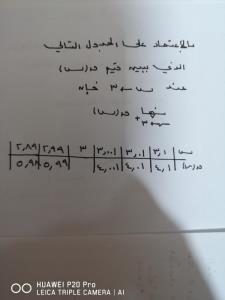 بالإعتماد على الجدول التالي
الذي يبين قيم ق(س)
عندما س → ٣ فإن
نهـــا ق(س)
س → ٣+
س | ٣,١ | ٣,٠١ | ٣,٠٠١ | ٣ | ٢,٩٩ | ٢,٨٩
ق(س) | ٤,١ | ٤,٠١ | ٤,٠٠١ | | ٥,٩٩ | ٥,٩٨
HUAWEI P20 Pro
LEICA TRIPLE CAMERA | AI